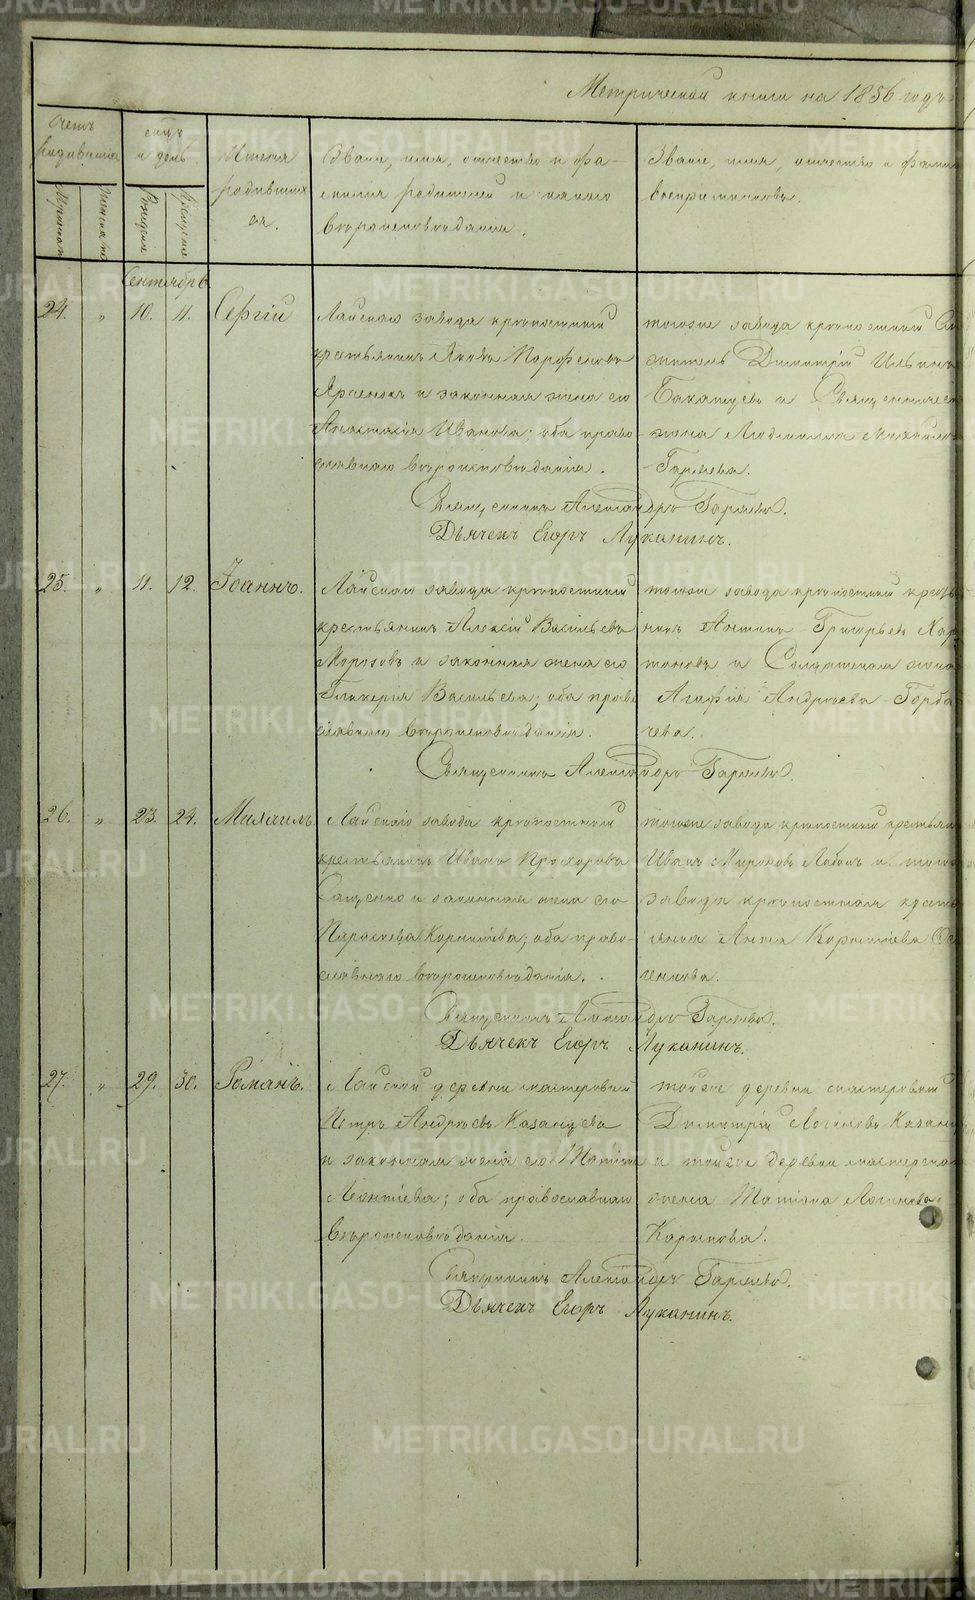 Метрической книги на 1856 годъ
Счетъ родившихся
Мѣсяцъ и день
Имена родившихся.
Званіе, имя, отчество и фамилія родителей и какого вѣроисповѣданія.
Званіе, имя, отчество и фами
воспріемниковъ.
Рожденія
Крещенія
Сентябрь.
24. " 10. 11. Сергій
Лайскаго завода крѣпостный
крестьянинъ Яковъ Парфеновъ
и законная жена его
Анастасія Иванова; оба право-
славнаго вѣроисповѣданія.
тогоже завода крѣпостный
Димитрій Ильинъ
и Священническая
жена Людмилла Михайлова
Гаряева.
Священникъ Александръ Гаряевъ.
Дьячекъ Егоръ Луканинъ.
25. " 11. 12. Іоаннъ.
Лайскаго завода крѣпостный
крестьянинъ Алексій Васильевъ
Морозовъ и законная жена его
Гликерія Васильева; оба право
славнаго вѣроисповѣданія.
тогоже завода крѣпостный кресть
нинъ Антонъ Григорьевъ Хар
тоновъ и Солдатская жена
Агафія Андреева Горба
чева.
Священникъ Александръ Гаряевъ.
26. " 23. 24. Михаилъ.
Лайскаго завода крѣпостный
крестьянинъ Иванъ Прохоровъ
Сащенко и законная жена его
Параскева Корнилова; оба право-
славнаго вѣроисповѣданія.
тогоже завода крѣпостный крестьян
Иванъ Мироновъ Лобанъ и тогоже
завода крѣпостная кресть
янка Анна
Священникъ Александръ Гаряевъ.
Дьячекъ Егоръ Луканинъ.
27. " 29. 30. Романъ.
Лайской деревни мастеровый
Петръ Андреевъ Казанцевъ
и законная жена его Татіана
Леонтіева; оба православнаго
вѣроисповѣданія.
тойже деревни мастеровый
Димитрій Логиновъ Казан
и тойже деревни мастерская
женка Татіана Логинова
Карпова.
Священникъ Александръ Гаряевъ.
Дьячекъ Егоръ Луканинъ.
METRIKI.GASO-URAL.RU